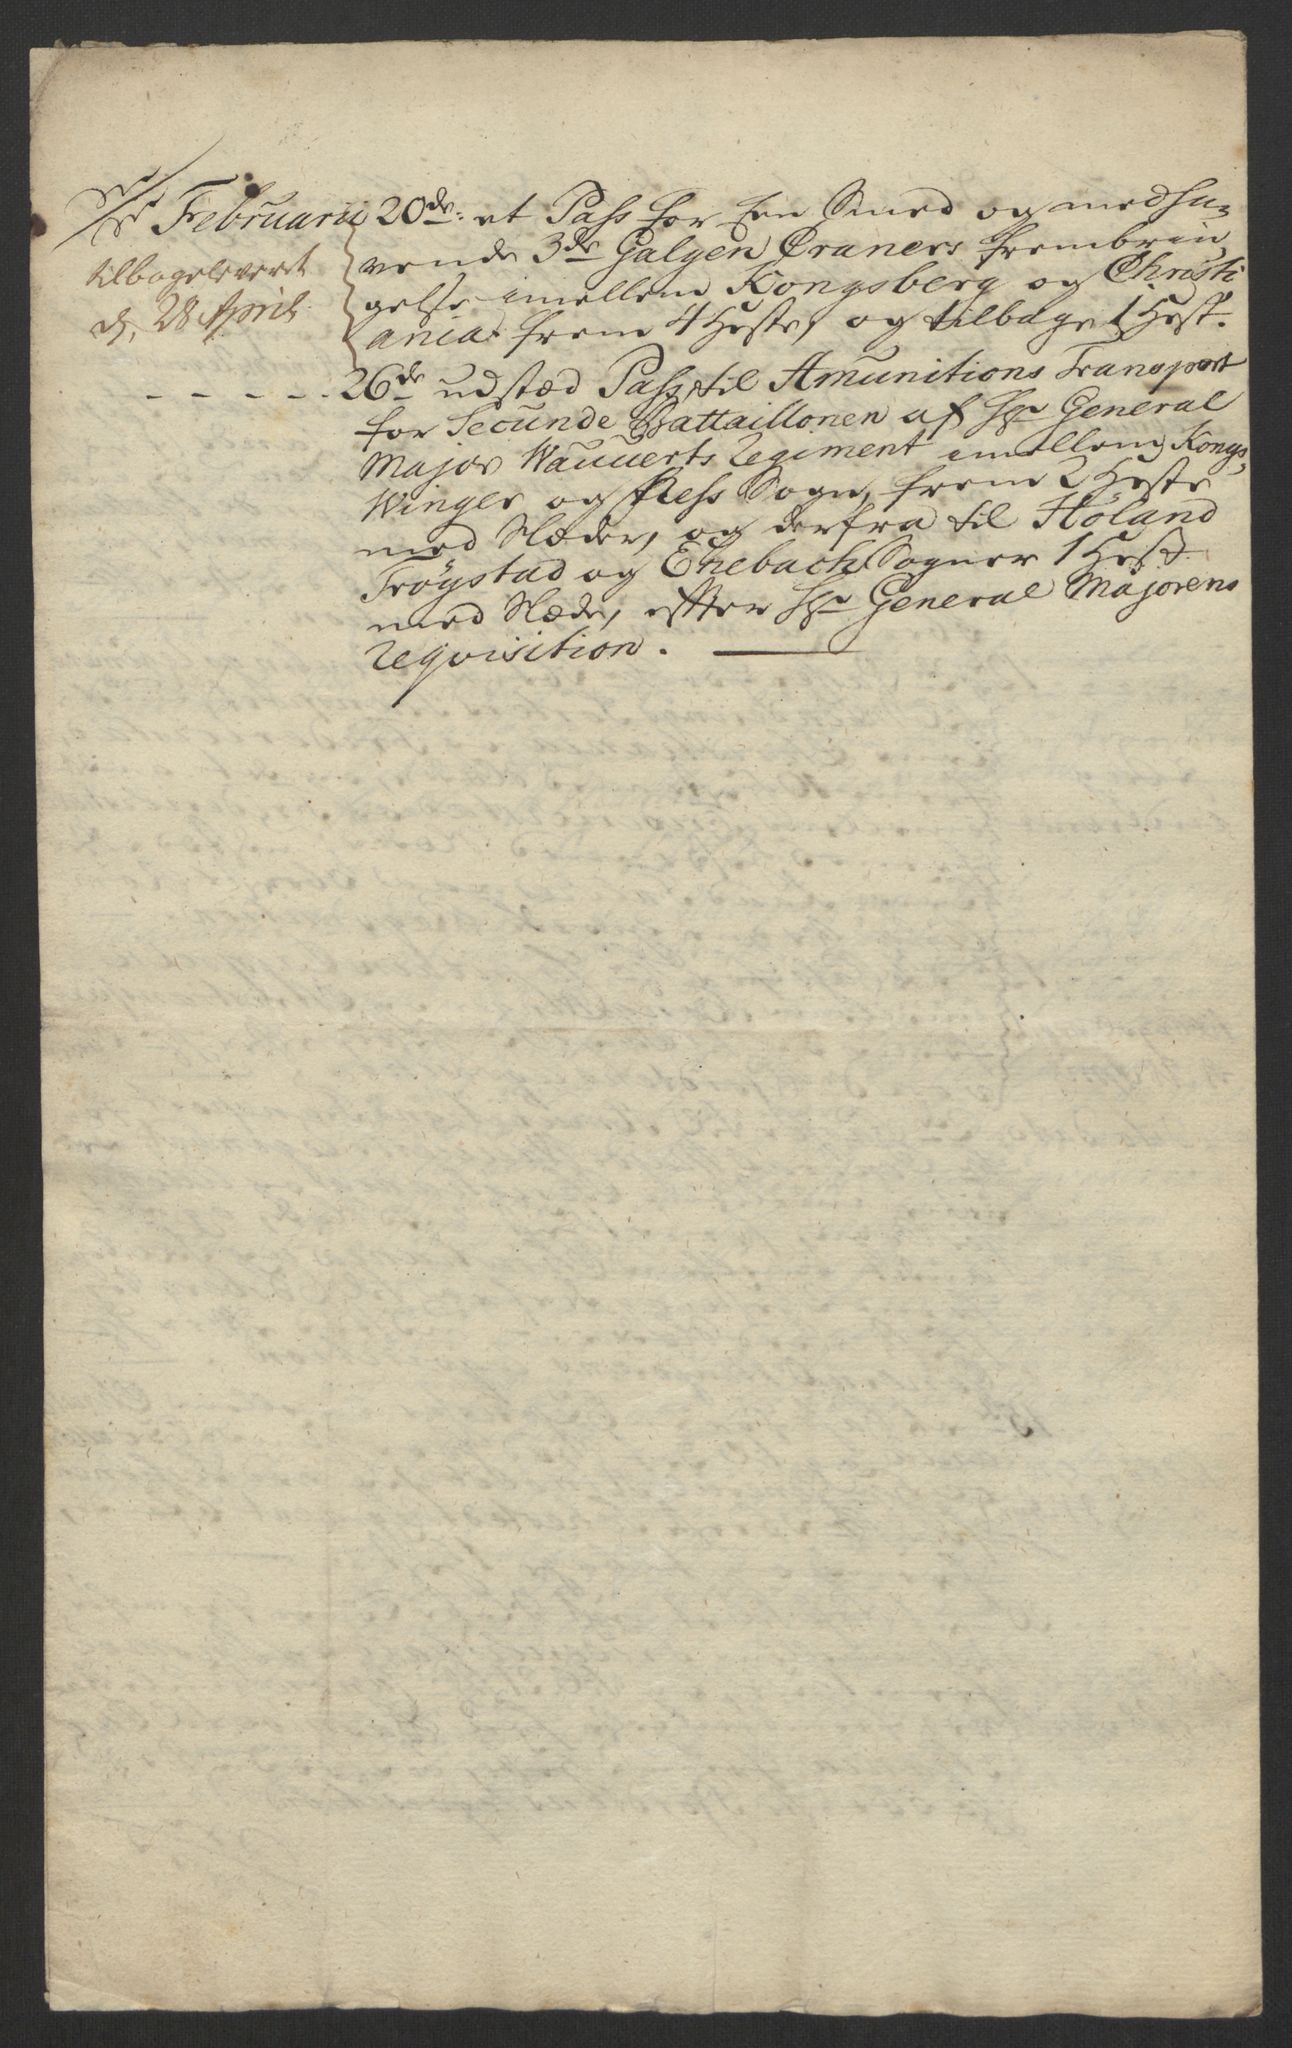 Februarii 20de: et Pass for En Smed og medha-
vende 3de Galgen Craners frembrin
gelse imellem Kongsberg og Christi
ania: frem 4 Heste, og tilbage 1 Hest.
tilbageleveret
d. 28 April.
26de udstæd Pass til Amunitions Transport
for Secunde Battaillonen af Hr General
Major Wauuerts Regiment imellem Kongs-
Winger og Ness Sogn, frem 2 Heste
med Slæder, og derfra til Höland
Tröystad og Enebach Sogner 1 Hest
med Slæde, efter Hr General Majorens
requisition.